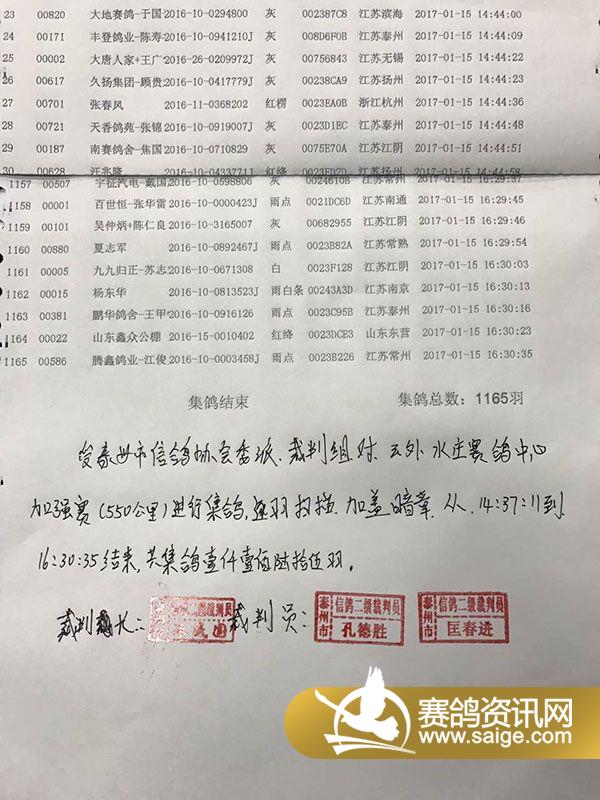 23 00820 大地赛鸽-于国 2016-10-0294800 灰 002387C8 江苏滨海 2017-01-15 14:44:00
24 00171 丰登鸽业-陈寿 2016-10-0941210J 灰 008D6F0B 江苏泰州 2017-01-15 14:44:09
25 00002 大唐人家+王广 2016-26-0209972J 灰 00756843 江苏无锡 2017-01-15 14:44:22
26 00617 久扬集团-顾贵 2016-10-0417779J 灰 00238CA9 江苏扬州 2017-01-15 14:44:23
27 00701 张春风 2016-11-0368202 红楞 0023EA0B 浙江杭州 2017-01-15 14:44:36
28 00721 天香鸽苑-张锦 2016-10-0919007J 灰 0023D1EC 江苏泰州 2017-01-15 14:44:48
29 00187 南赛鸽舍-焦国 2016-10-0710829 灰 0075E70A 江苏江阴 2017-01-15 14:44:51
30 00628 汪兆隆 2016-10-0433771J 红绛 江苏扬州 2017-01-15 14:44:58
1157 00507 宇征汽电-戴国 2016-10-0598806 灰 0024610B 江苏常州 2017-01-15 16:29:37
1158 00001 百世恒-张华雷 2016-10-0000423J 雨点 0021DC6D 江苏南通 2017-01-15 16:29:45
1159 00101 吴仲炳+陈仁良 2016-10-3165007 灰 00682955 江苏江阴 2017-01-15 16:29:46
1160 00880 夏志军 2016-10-0892467J 雨点 0023B82A 江苏常熟 2017-01-15 16:29:54
1161 00005 九九归正-苏志 2016-10-0671308 白 0023F128 江苏江阴 2017-01-15 16:30:03
1162 00015 杨东华 2016-10-0813523J 雨白条 00243A3D 江苏南京 2017-01-15 16:30:13
1163 00381 鹏华鸽舍-王甲 2016-10-0916126 雨点 0023C95B 江苏泰州 2017-01-15 16:30:16
1164 00022 山东鑫众公棚 2016-15-0010402 红绛 0023DCE3 山东东营 2017-01-15 16:30:23
1165 00586 腾鑫鸽业-江俊 2016-10-0003458J 雨点 0023B226 江苏常州 2017-01-15 16:30:35
集鸽结束 集鸽总数：1165羽
受泰州市信鸽协会委派.裁判组对 水庄赛鸽中心
加强赛(550公里)进行集鸽,逐羽扫描.加盖暗章.从.14:37:11到
16:30:35结束,共集鸽壹仟壹佰陆拾伍羽。
裁判长: 泰州市 信鸽二级裁判员 裁判员: 泰州市 信鸽二级裁判员 孔德胜 泰州市 信鸽二级裁判员 匡春进
赛鸽资讯网
www.saige.com